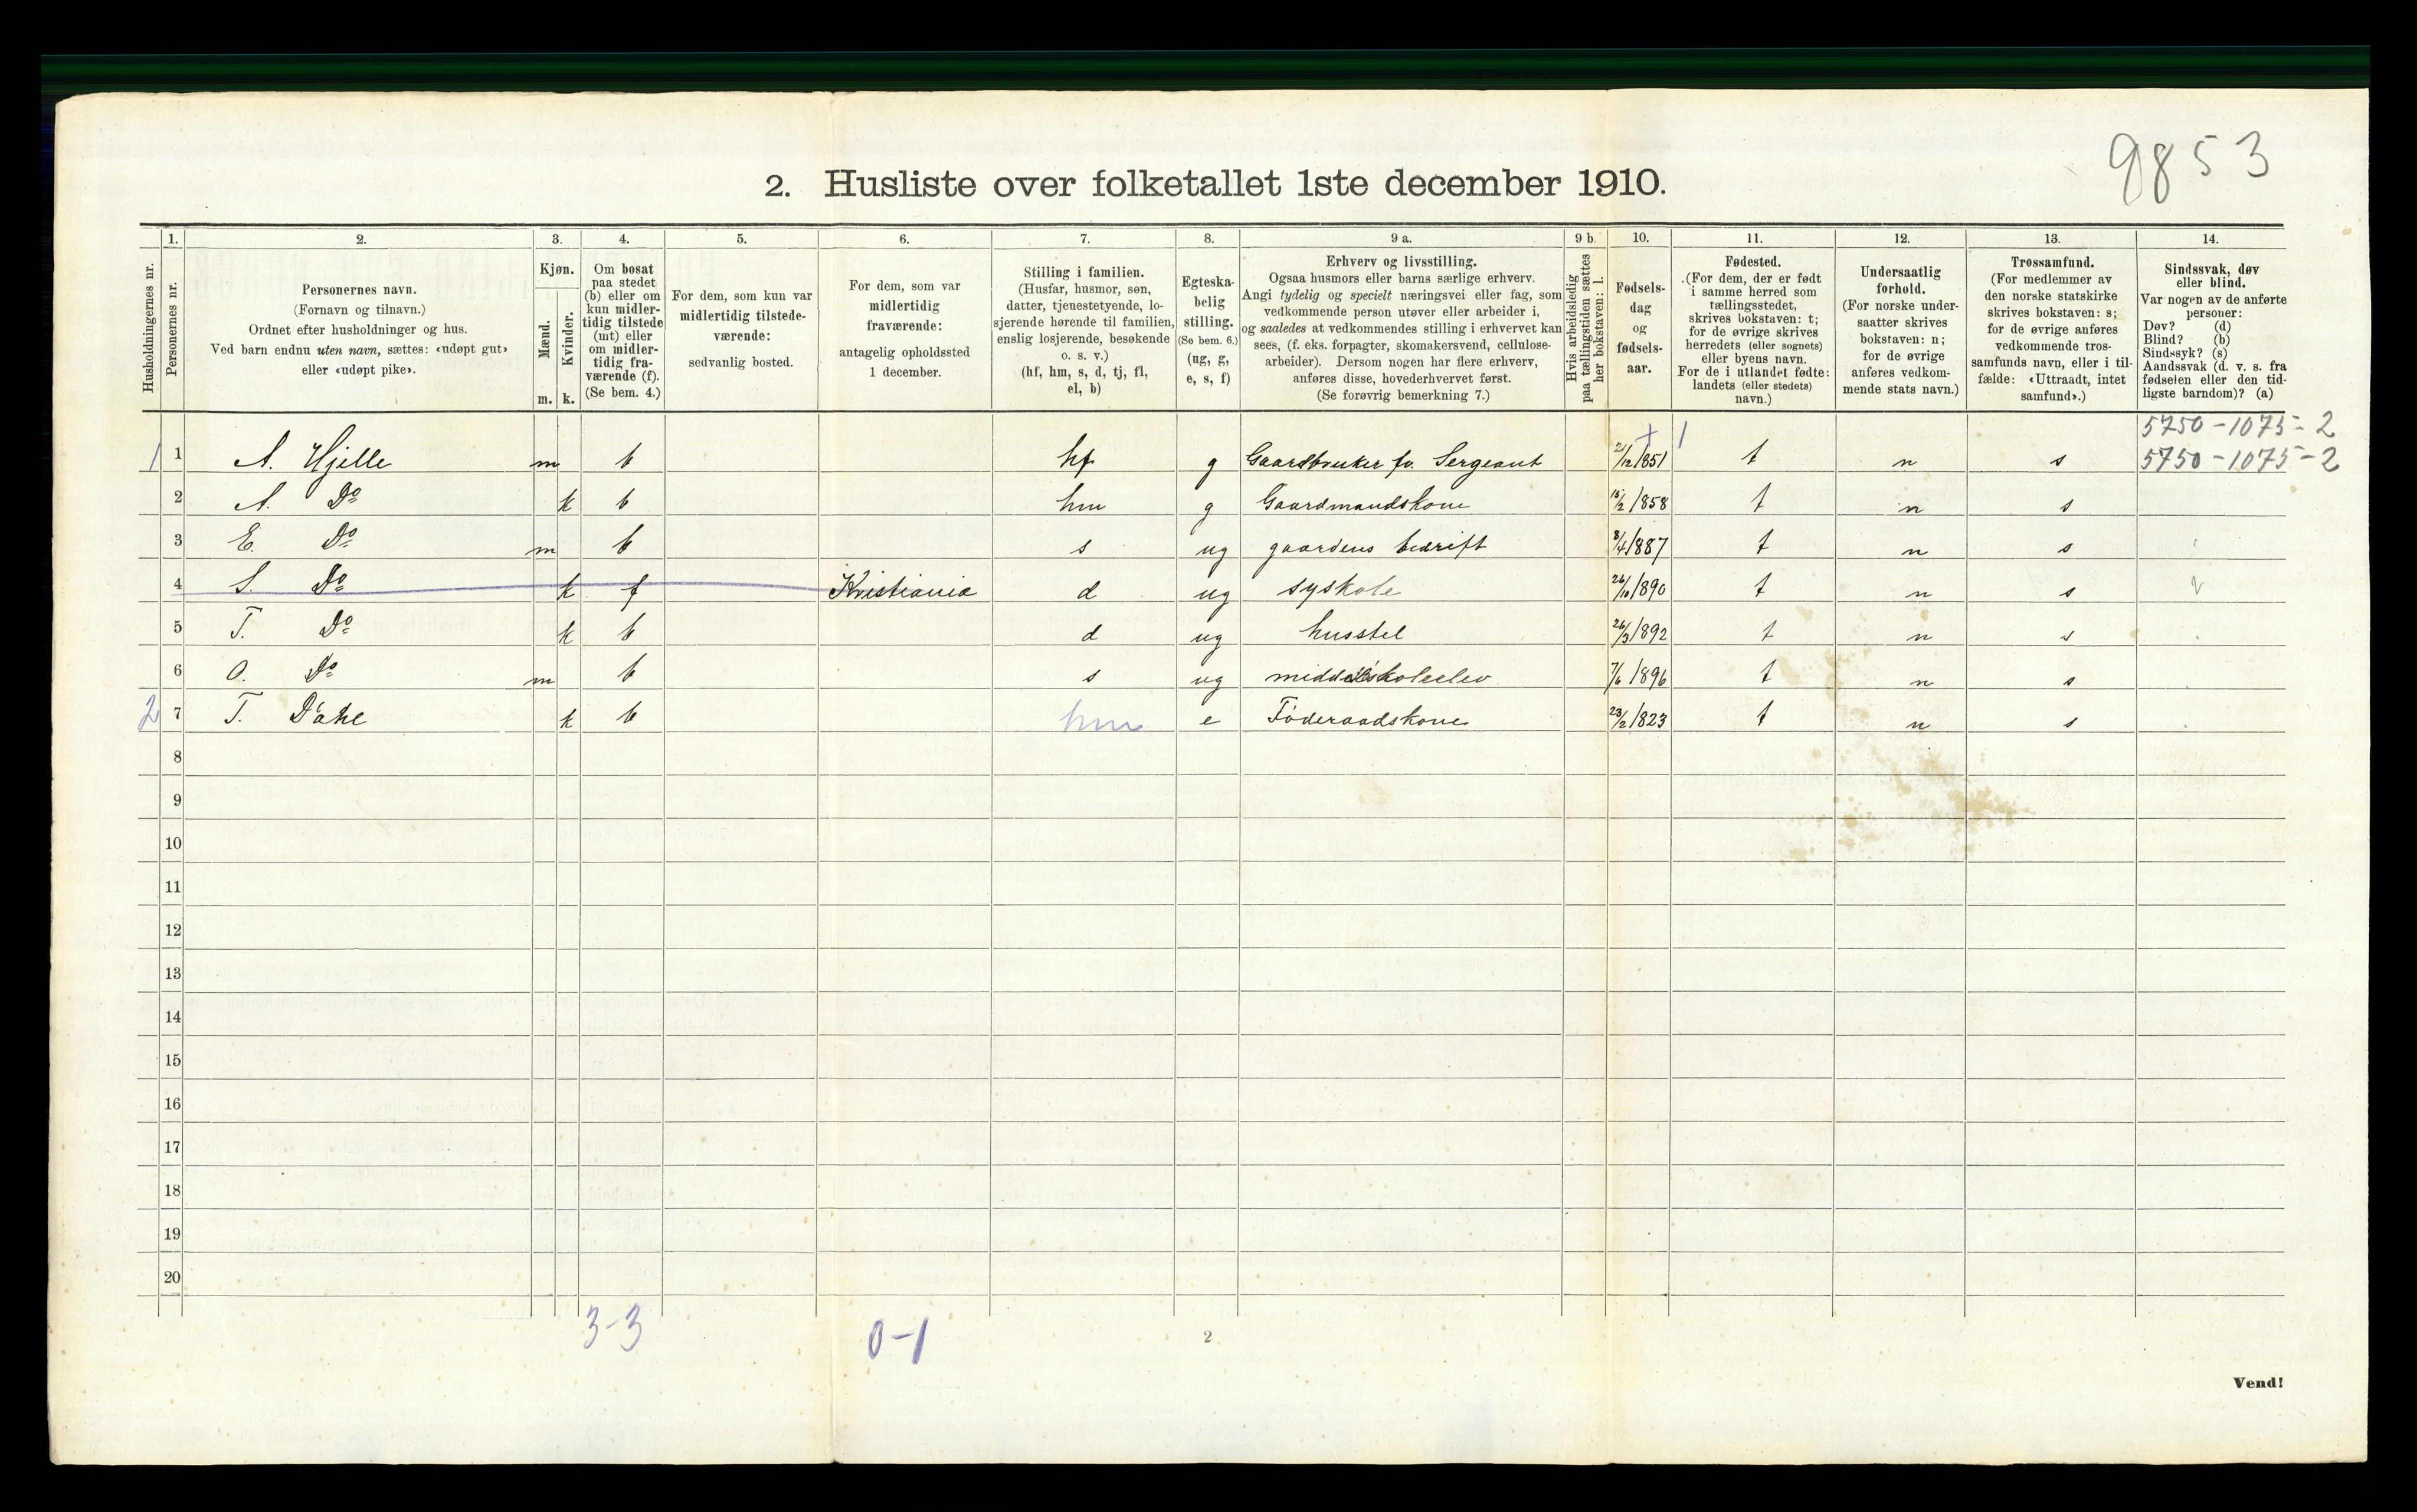 9853
2. Husliste over folketallet 1ste december 1910.
Husholdningernes nr.
1. Personernes nr.
2. Personernes navn.
(Fornavn og tilnavn.)
Ordnet efter husholdninger og hus.
Ved barn endnu uten navn, sættes: «udøpt gut»
eller «udøpt pike».
3. Kjøn.
Mænd. Kvinder.
m. k.
4. Om bosat
paa stedet
(b) eller om
kun midler-
tidig tilstede
(mt) eller
om midler-
tidig fra-
værende (f).
(Se bem. 4.)
5. For dem, som kun var
midlertidig tilstede-
værende:
sedvanlig bosted.
6. For dem, som var
midlertidig
fraværende:
antagelig opholdssted
1 december.
7. Stilling i familien.
(Husfar, husmor, søn,
datter, tjenestetyende, lo-
sjerende hørende til familien,
enslig losjerende, besøkende
o. s. v.)
(hf, hm, s, d, tj, fl,
el, b)
8. Egteska-
belig
stilling.
(Se bem. 6.)
(ug, g,
e, s, f)
9 a. Erhverv og livsstilling.
Ogsaa husmors eller barns særlige erhverv.
Angi tydelig og specielt næringsvei eller fag, som
vedkommende person utøver eller arbeider i,
og saaledes at vedkommendes stilling i erhvervet kan
sees, (f. eks. forpagter, skomakersvend, cellulose-
arbeider). Dersom nogen har flere erhverv,
anføres disse, hovederhvervet først.
(Se forøvrig bemerkning 7.)
9 b. Hvis arbeidsledig
paa tællingstiden sættes
her bokstaven: l.
10. Fødsels-
dag
og
fødsels-
aar.
11. Fødested.
(For dem, der er født
i samme herred som
tællingsstedet,
skrives bokstaven: t;
for de øvrige skrives
herredets (eller sognets)
eller byens navn.
For de i utlandet fødte:
landets (eller stedets)
navn.)
12. Undersaatlig
forhold.
(For norske under-
saatter skrives
bokstaven: n;
for de øvrige
anføres vedkom-
mende stats navn.)
13. Trossamfund.
(For medlemmer av
den norske statskirke
skrives bokstaven: s;
for de øvrige anføres
vedkommende tros-
samfunds navn, eller i til-
fælde: «Uttraadt, intet
samfund».)
14. Sindssvak, døv
eller blind.
Var nogen av de anførte
personer:
Døv? (d)
Blind? (b)
Sindssyk? (s)
Aandssvak (d. v. s. fra
fødselen eller den tid-
ligste barndom)? (a)
5750-1075-2
1 1 A. Hjelle m b hf g Gaardbruker fv. Sergeant 21/12 1851 t n s 5750-1075-2
2 A. Do k b hm g Gaardmandskone 15/2 1858 t n s
3 E. Do m b s ug gaardens bedrift 8/4 1887 t n s
4 S. Do k f Kristiania d ug syskole 26/10 1890 t n s
5 T. Do k b d ug husstel 26/3 1892 t n s
6 O. Do m b s ug middelskoleelev 7/6 1896 t n s
2 7 T. Dahl k b hm e Føderaadskone 23/2 1823 t n s
8
9
10
11
12
13
14
15
16
17
18
19
20
3-3 0-1 2
Vend!